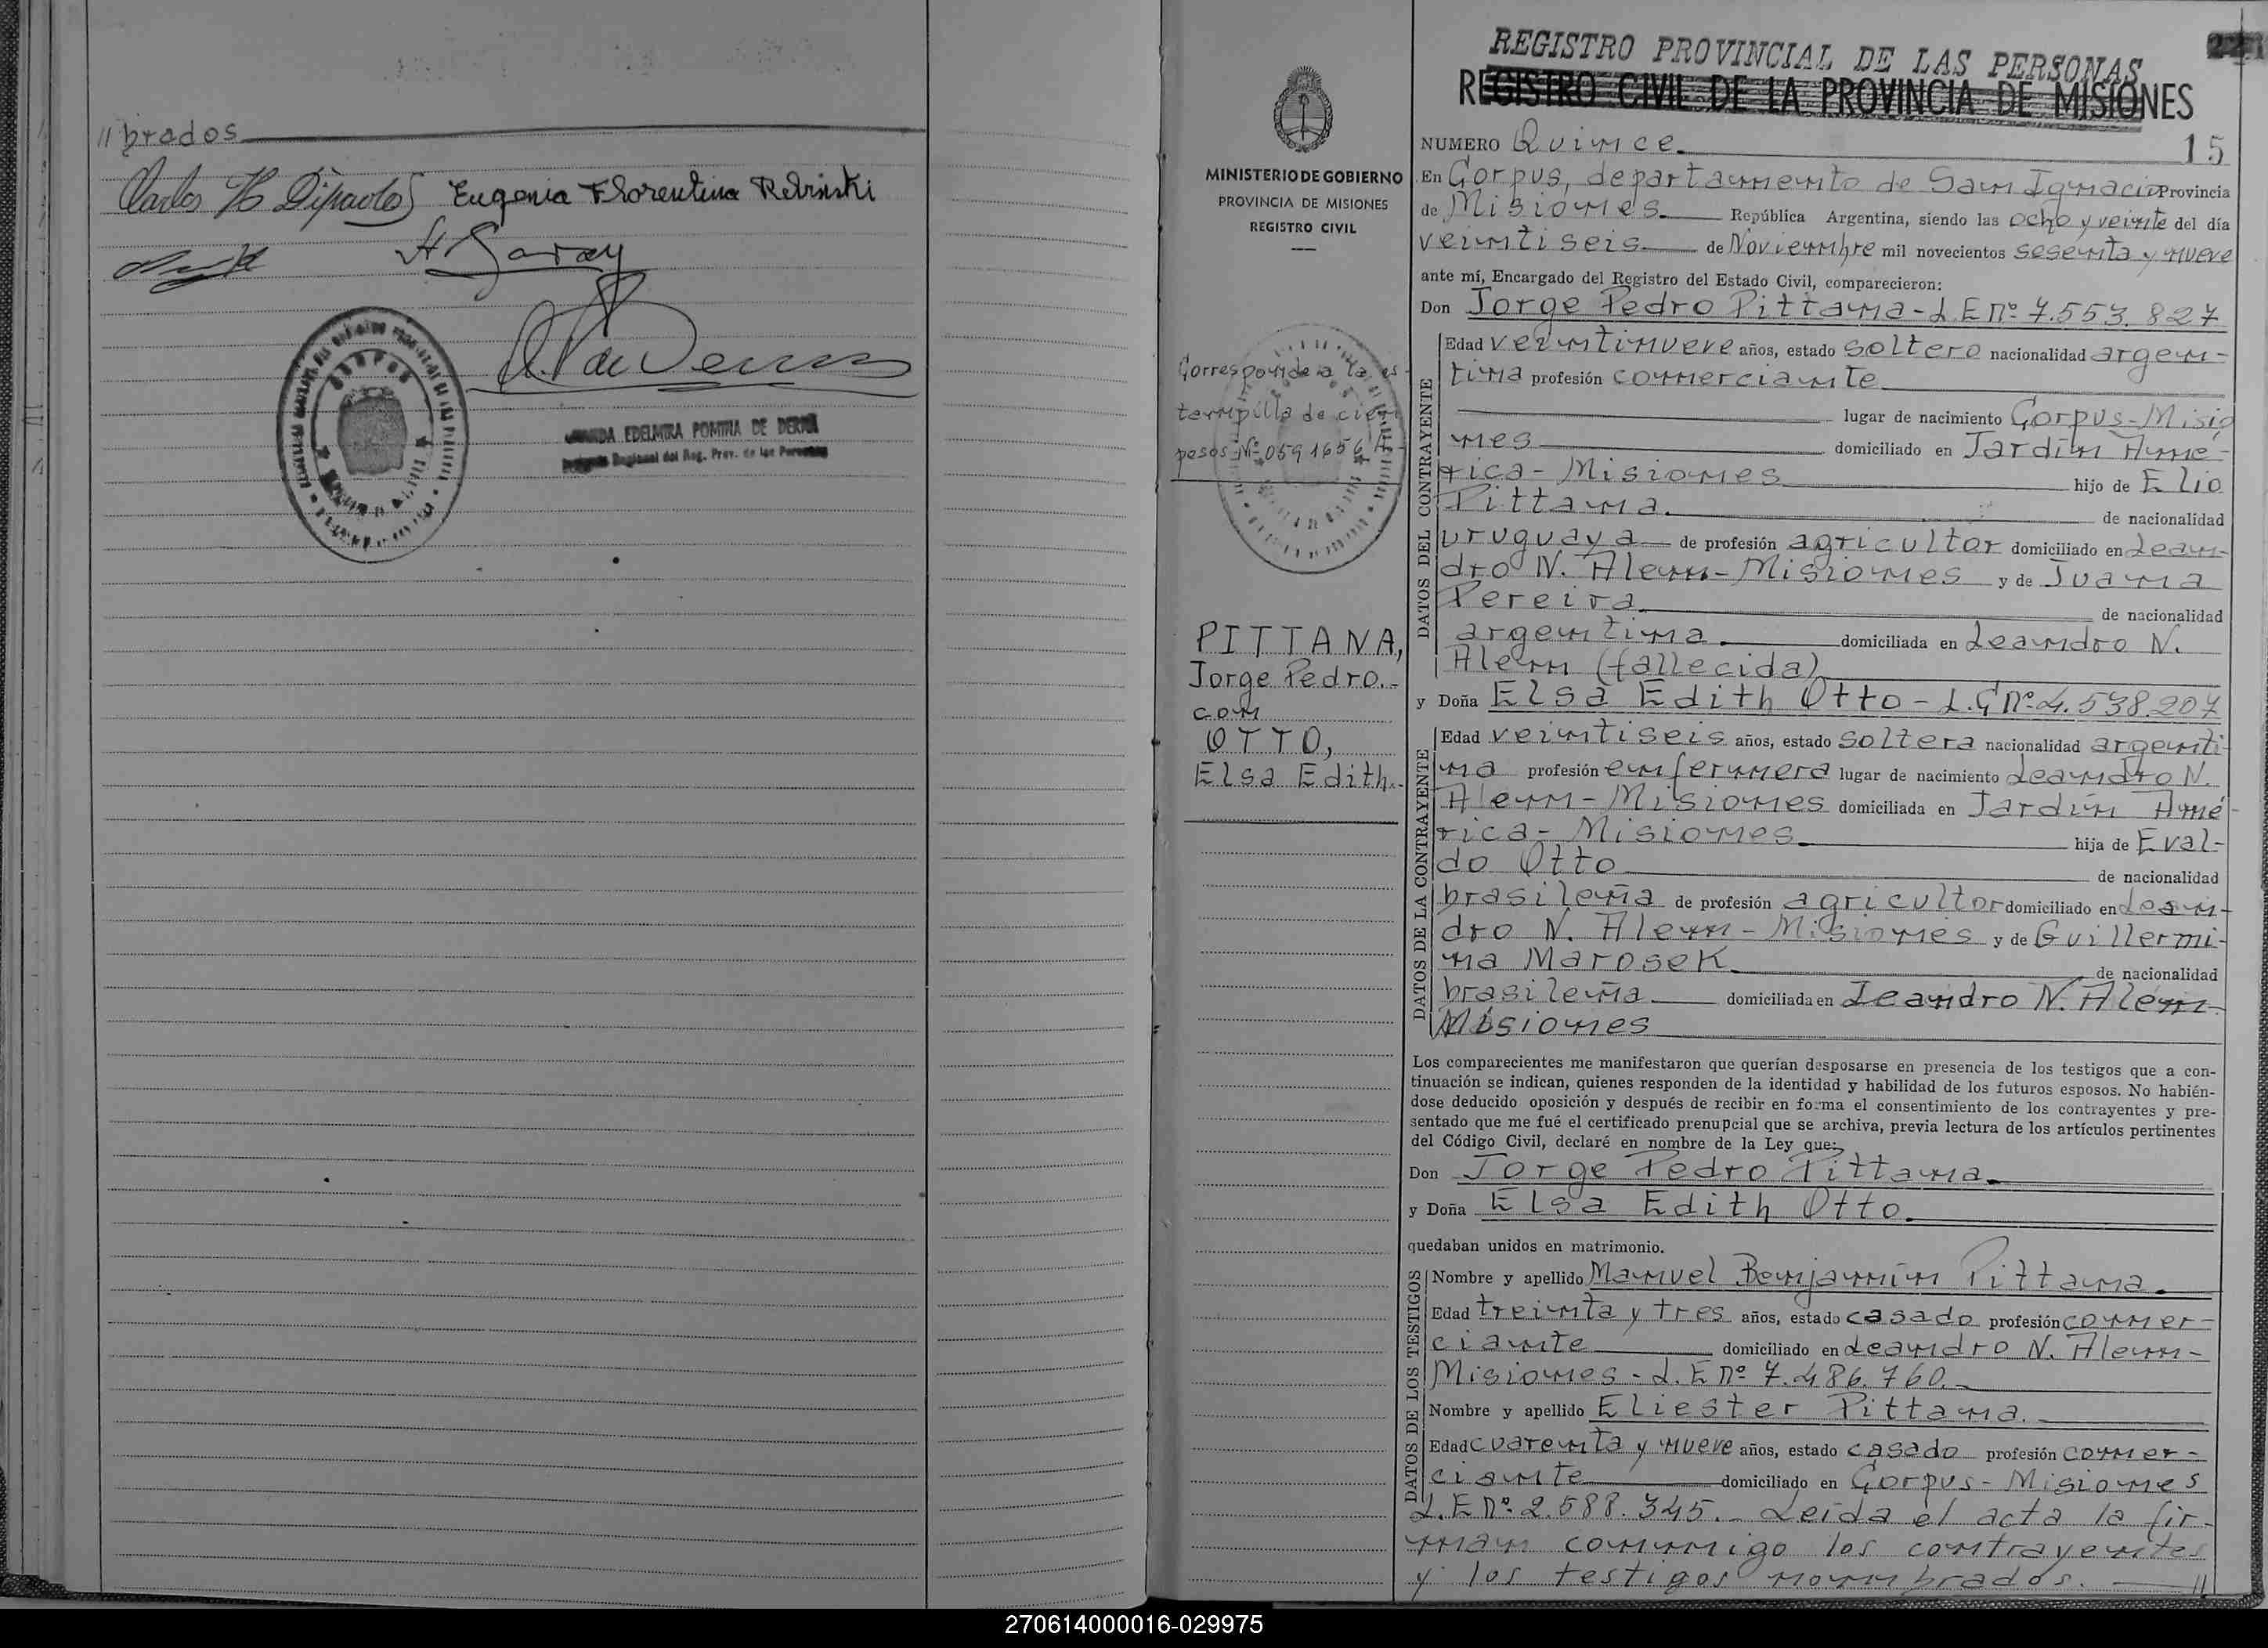 // brados
Carlos H Dipaolo
Eugenia Florentina Rebinski
A Garay
CORPUS
EDELMIRA POMINA DE DERNA
Regional del Reg. Prov. de las Personas
MINISTERIO DE GOBIERNO
PROVINCIA DE MISIONES
REGISTRO CIVIL
Corresponde a la es-
tampilla de cien
pesos Nº 0591656 A-
PITTANA,
Jorge Pedro.-
con
OTTO,
Elsa Edith.-
REGISTRO PROVINCIAL DE LAS PERSONAS
REGISTRO CIVIL DE LA PROVINCIA DE MISIONES
NUMERO Quince.
15
En Corpus, departamento de San Ignacio Provincia
de Misiones. República Argentina, siendo las ocho y veinte del día
veintiseis de Noviembre mil novecientos sesenta y nueve
ante mí, Encargado del Registro del Estado Civil, comparecieron:
Don Jorge Pedro Pittana - L.E nº 7.553.827
DATOS DEL CONTRAYENTE
Edad veintinueve años, estado soltero nacionalidad argen-
tina profesión comerciante
lugar de nacimiento Corpus-Misio
nes domiciliado en Jardín Amé-
rica - Misiones hijo de Elio
Pittana. de nacionalidad
uruguaya de profesión agricultor domiciliado en Lean-
dro N. Alem - Misiones y de Juana
Pereira. de nacionalidad
argentina. domiciliada en Leandro N.
Alem (fallecida)
y Doña Elsa Edith Otto - L.C nº 4.538.207
DATOS DE LA CONTRAYENTE
Edad veintiseis años, estado soltera nacionalidad argenti-
na profesión enfermera lugar de nacimiento Leandro N.
Alem - Misiones domiciliada en Jardín Amé-
rica - Misiones. hija de Eval-
do Otto de nacionalidad
brasileña de profesión agricultor domiciliado en Lean-
dro N. Alem - Misiones y de Guillermi-
na Marosek. de nacionalidad
brasileña domiciliada en Leandro N. Alem-
Misiones
Los comparecientes me manifestaron que querían desposarse en presencia de los testigos que a con-
tinuación se indican, quienes responden de la identidad y habilidad de los futuros esposos. No habién-
dose deducido oposición y después de recibir en forma el consentimiento de los contrayentes y pre-
sentado que me fué el certificado prenupcial que se archiva, previa lectura de los artículos pertinentes
del Código Civil, declaré en nombre de la Ley que:
Don Jorge Pedro Pittana.
y Doña Elsa Edith Otto.
quedaban unidos en matrimonio.
DATOS DE LOS TESTIGOS
Nombre y apellido Manuel Benjamín Pittana.
Edad treinta y tres años, estado casado profesión comer-
ciante domiciliado en Leandro N. Alem-
Misiones - L.E nº 7.486.760.-
Nombre y apellido Eliester Pittana.
Edad cuarenta y nueve años, estado casado profesión comer-
ciante domiciliado en Corpus - Misiones
L.E nº 2.588.345.- Leída el acta la fir-
man conmigo los contrayentes
y los testigos nombrados. //
270614000016-029975